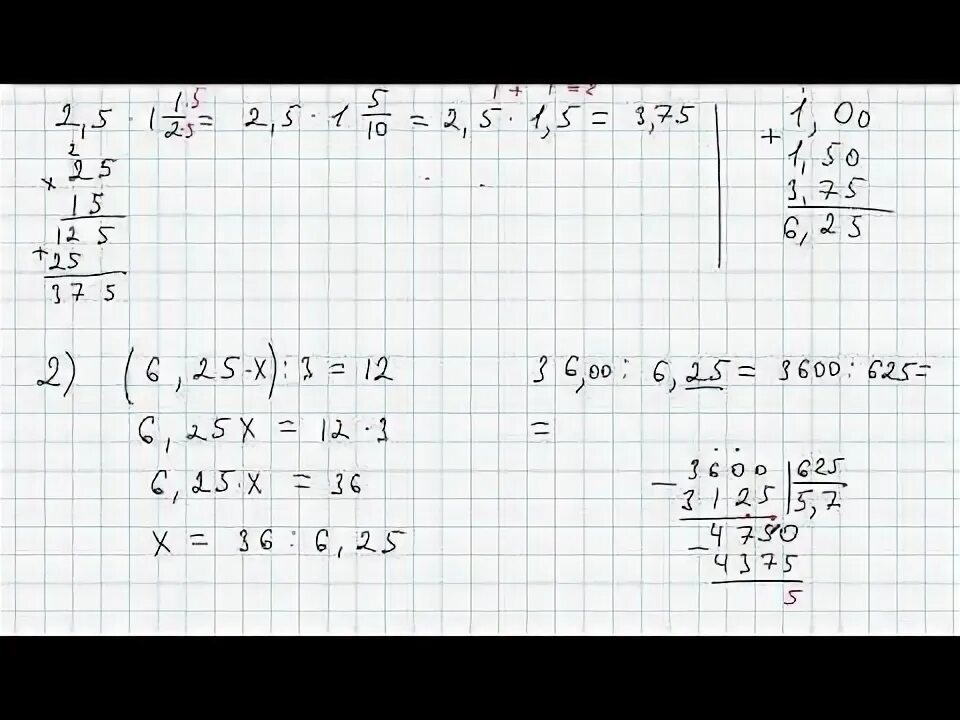 1 + 1 = 2
2,5 · 1 1·5/2·5 = 2,5 · 1 5/10 = 2,5 · 1,5 = 3,75
2
× 25
15
125
+ 25
375
1,00
+ 1,50
3,75
6,25
2) (6,25·x) : 3 = 12
6,25x = 12 · 3
6,25·x = 36
x = 36 : 6,25
36,00 : 6,25 = 3600 : 625 =
=
− 3600 | 625
3125 | 5,7
− 4750
4375
5